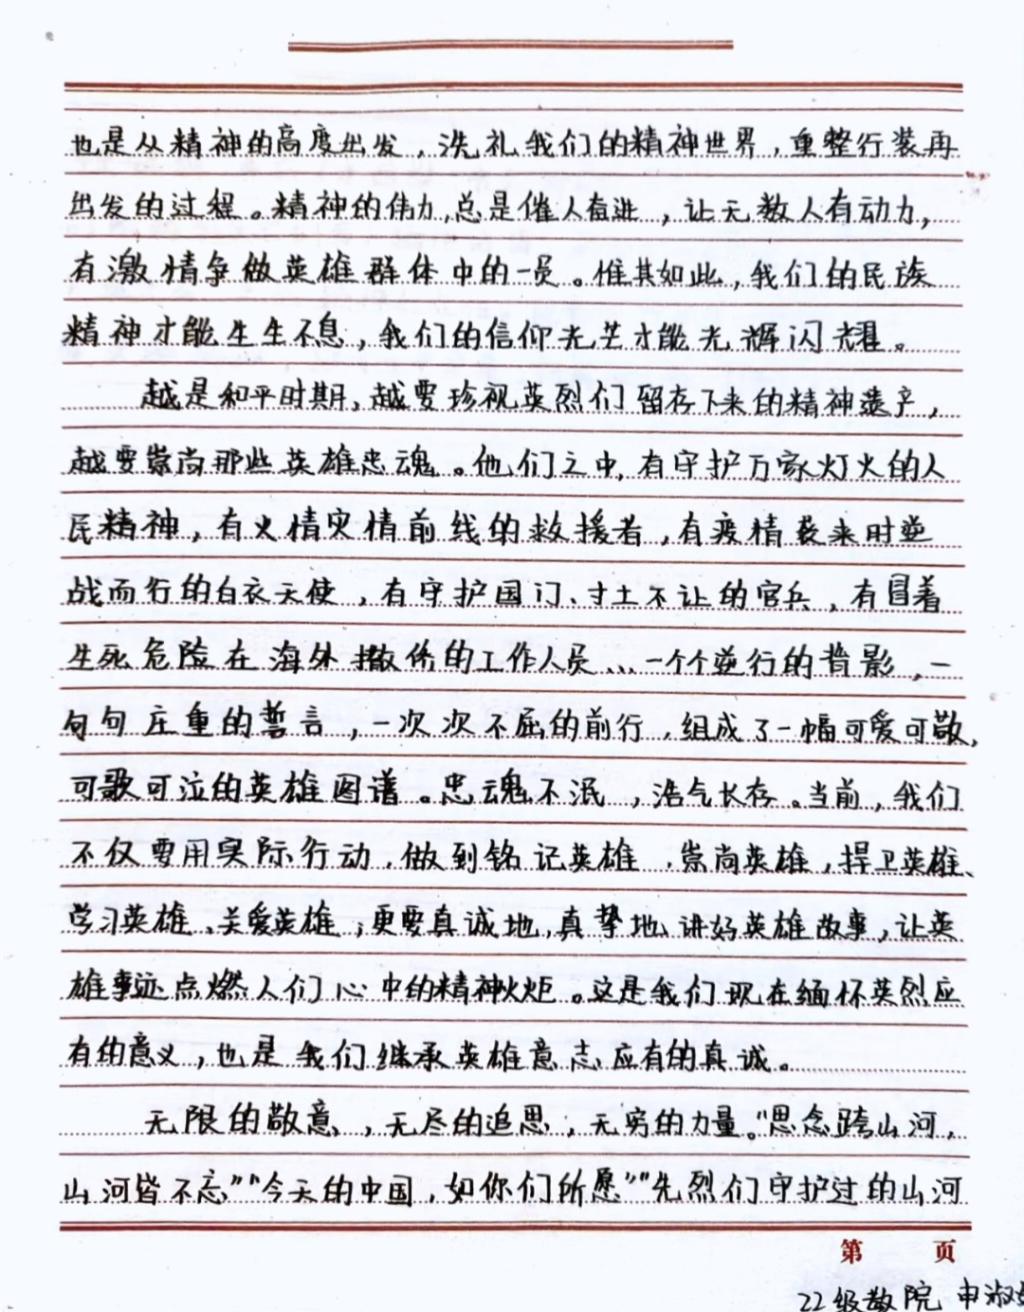 也是从精神的高度出发，洗礼我们的精神世界，重整行装再
出发的过程。精神的伟力，总是催人奋进，让无数人有动力，
有激情争做英雄群体中的一员。惟其如此，我们的民族
精神才能生生不息，我们的信仰光芒才能光辉闪耀。
越是和平时期，越要珍视英烈们留存下来的精神遗产，
越要崇尚那些英雄忠魂。他们之中，有守护万家灯火的人
民精神，有火情灾情前线的救援者，有疫情袭来时逆
战而行的白衣天使，有守护国门、寸土不让的官兵，有冒着
生死危险在海外撤侨的工作人员…一个个逆行的背影，一
句句庄重的誓言，一次次不屈的前行，组成了一幅可爱可敬，
可歌可泣的英雄图谱。忠魂不泯，浩气长存。当前，我们
不仅要用实际行动，做到铭记英雄，崇尚英雄，捍卫英雄、
学习英雄、关爱英雄；更要真诚地，真挚地讲好英雄故事，让英
雄事迹点燃人们心中的精神火炬。这是我们现在缅怀英烈应
有的意义，也是我们继承英雄意志应有的真诚。
无限的敬意，无尽的追思，无穷的力量。“思念跨山河，
山河皆不忘”“今天的中国，如你们所愿”“先烈们守护过的山河
第 页
22级数院 申淑